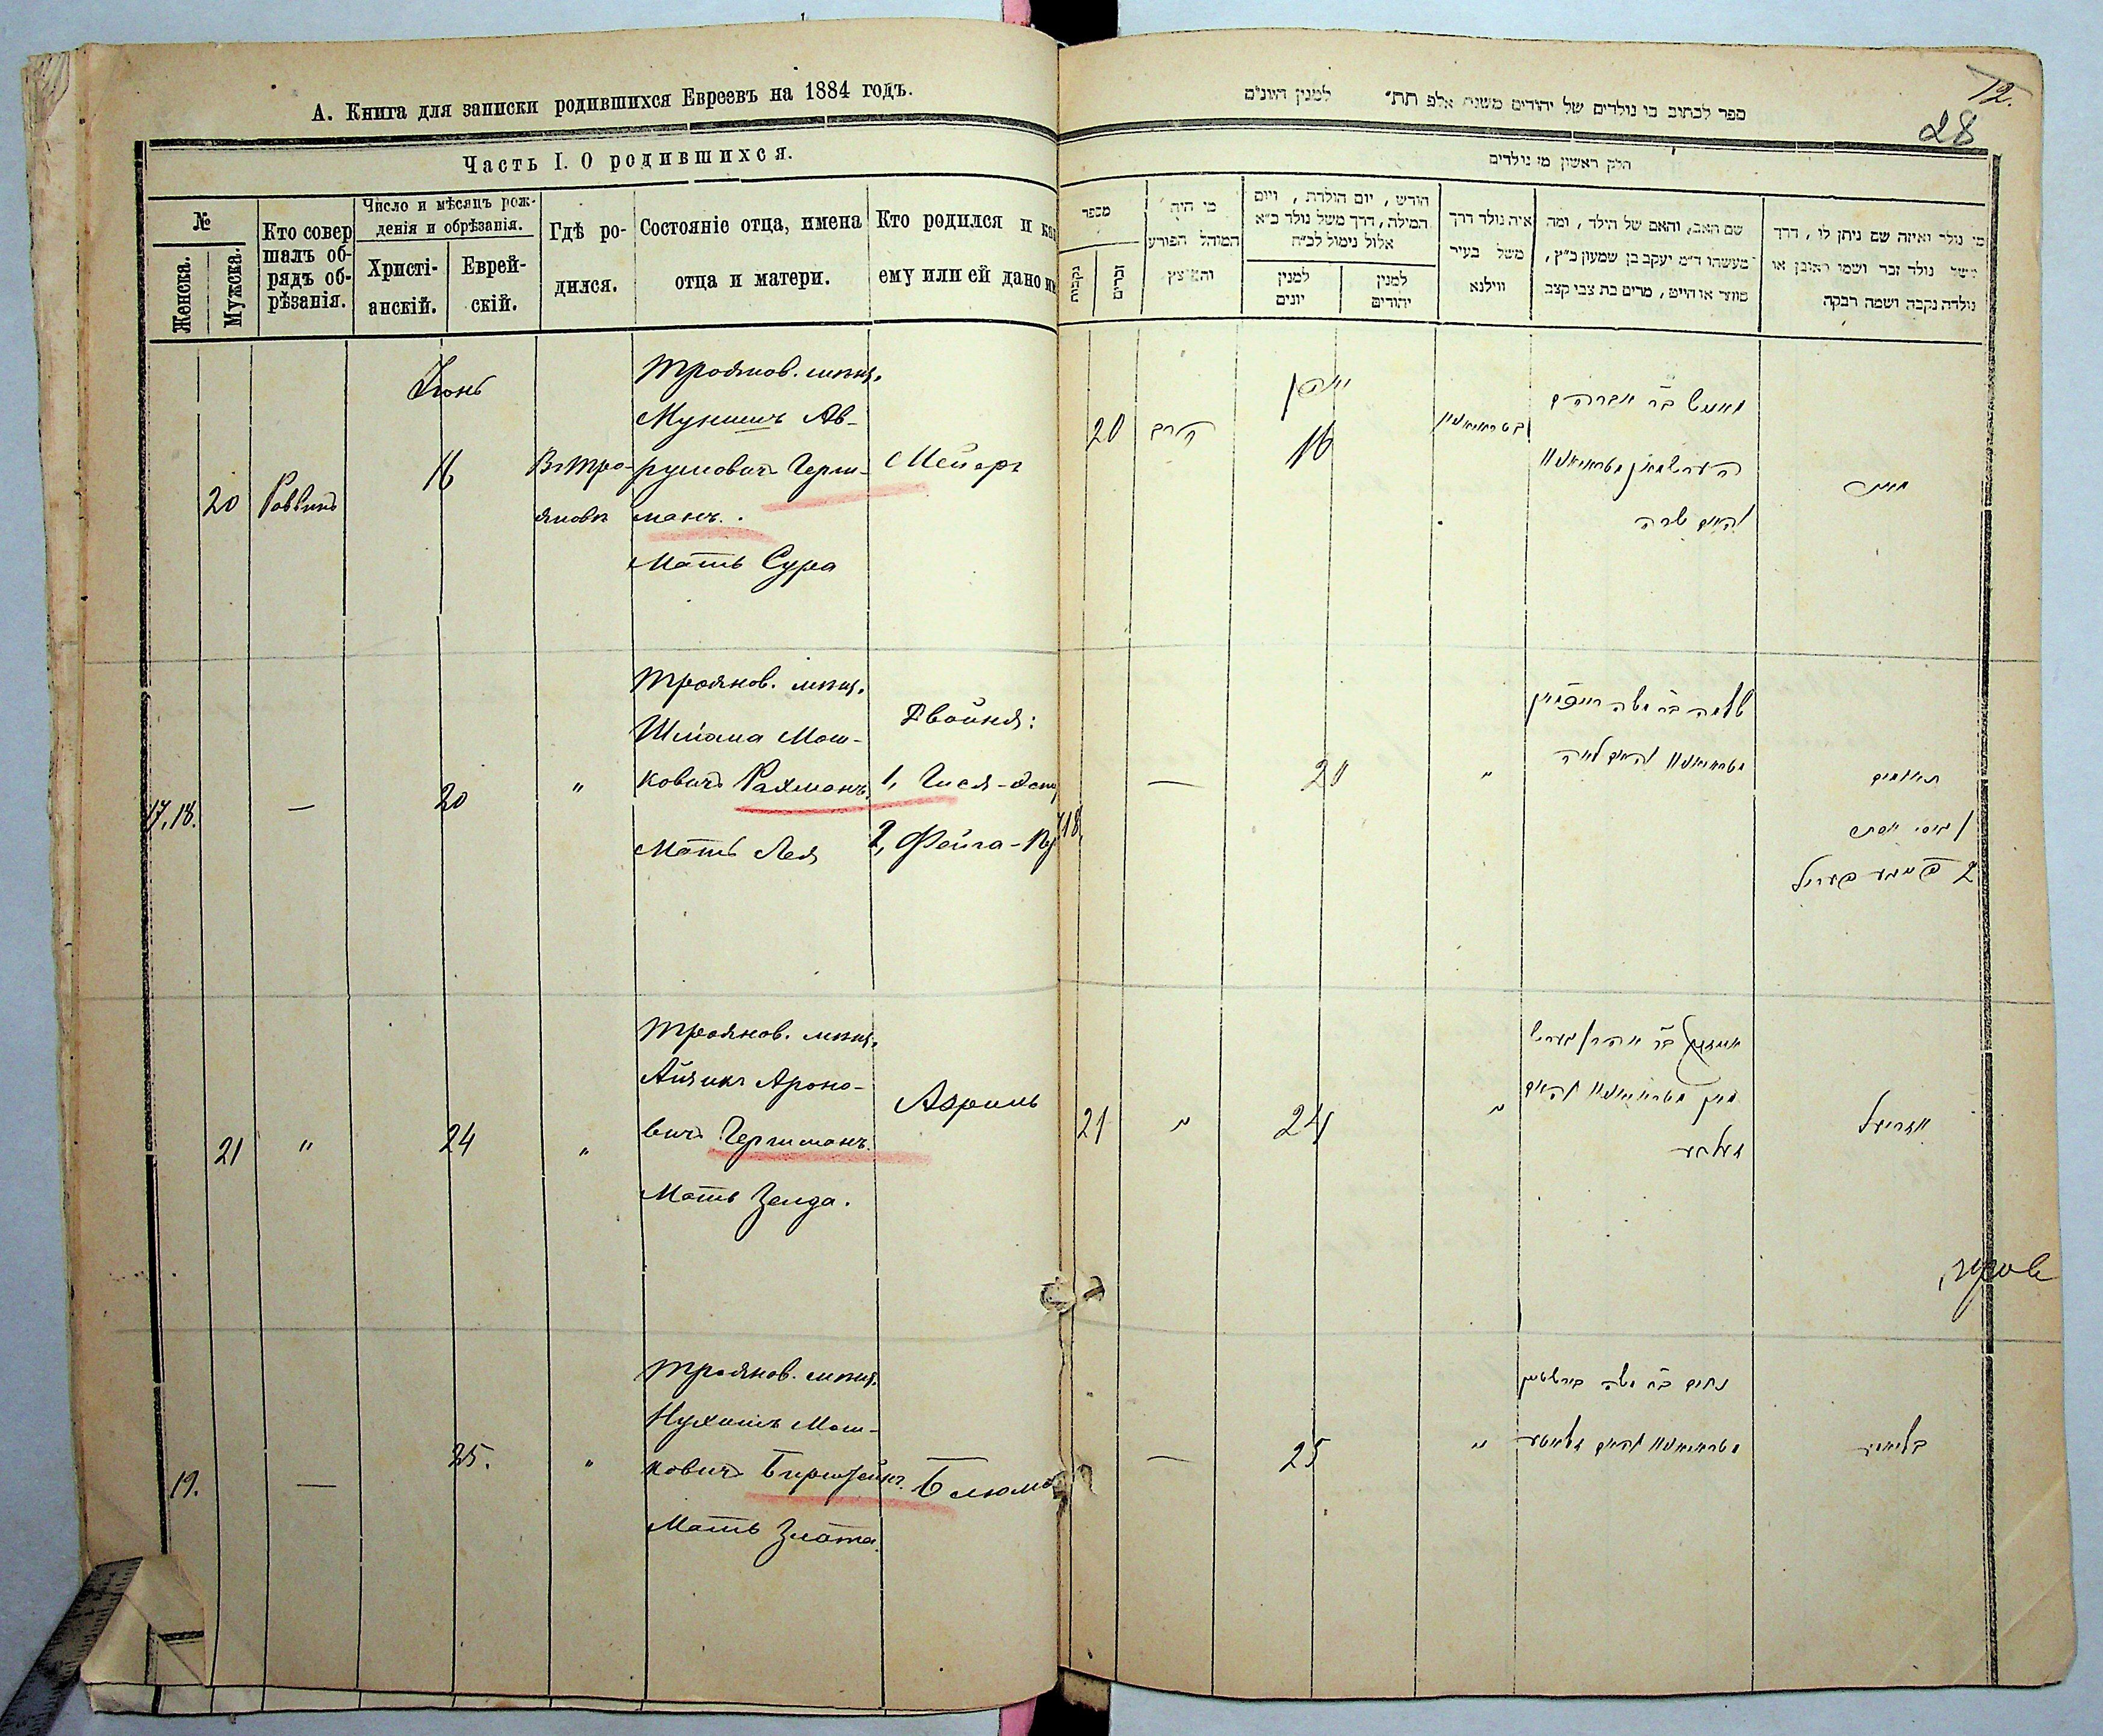 А. Книга для записки родившихся Евреевъ на 1884 годъ.
Часть I. О родившихся.
№
Женска.
Мужска.
Кто совер
шалъ об-
рядъ об-
рѣзанія.
Число и мѣсяцъ рож-
денія и обрѣзанія.
Христі-
анскій.
Еврей-
скій.
Гдѣ ро-
дился.
Состояніе отца, имена
отца и матери.
Кто родился и
ему или ей дано
20
Раввинъ
Іюнь
16
Въ Тро-
яновѣ
Троянов. мѣщ.
Мунишъ Ав-
румовичъ Герш-
манъ.
Мать Сура
Мейеръ
17, 18.
—
20
"
Троянов. мѣщ.
Шлома Мош-
ковичъ Рахманъ.
Мать Лея
Двойня:
1, Гися-
2, Фейга-
21
"
24
"
Троянов. мѣщ.
Айзикъ Ароно-
вичъ Гершманъ.
Мать Зелда.
Азриль
19.
—
25.
"
Троянов. мѣщ.
Нухимъ Мош-
ковичъ Бирштейнъ.
Мать Злата.
Блюма
12.
28
ספר לכתוב בו נולדים של יהודים משנת אלפ תת" למנין היונים
חלק ראשון מי נולדים
מספר
נקבות
זכרים
מי היה
המוהל הפורע
והמוצץ
חודש, יום הולדת, ויום
המילה, דרך משל נולד כ"א
אלול נימול לכ"ח
למנין
יונים
למנין
יהודים
איה נולד דרך
משל בעיר
ווילנא
שם האב, והאם של הילד, ומה
מעשהו ד"מ יעקב בן שמעון כ"ץ,
סוחר או חייט, מרים בת צבי קצב
מי נולד ואיזה שם ניתן לו, דרך
משל נולד זכר ושמו ראובן או
נולדה נקבה ושמה רבקה
20
הרב
יוני
16
בטראיאנוו
מוניש בר אברהם
הערשמאן
והאם שרה
מאיר
18,
—
20
"
שלמה בר משה
והאם לאה
תאומים
1
2
21
"
24
"
והאם
זעלדע
עזריאל
—
25
"
נחום בר משה בירשטיין
והאם זלאטע
בלומע